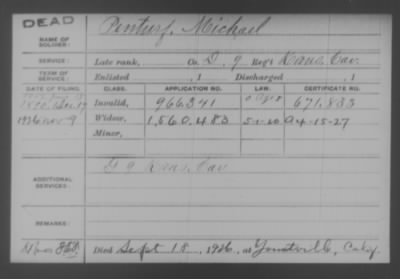 DEAD
NAME OF SOLDIER: Penturf, Michael
SERVICE: Late rank, Co. D, 9 Reg't Kans. Cav.
TERM OF SERVICE: Enlisted , 1 Discharged , 1
DATE OF FILING. CLASS. APPLICATION NO. LAW. CERTIFICATE NO.
Invalid, 966341 671.833
1926 Nov 9 Widow, 1,560,483 5-1-20 A 4-15-27
Minor,
ADDITIONAL SERVICES: D 9 Kans. Cav
REMARKS:
Died Sept 18, 1926, at Yountville, Calif.